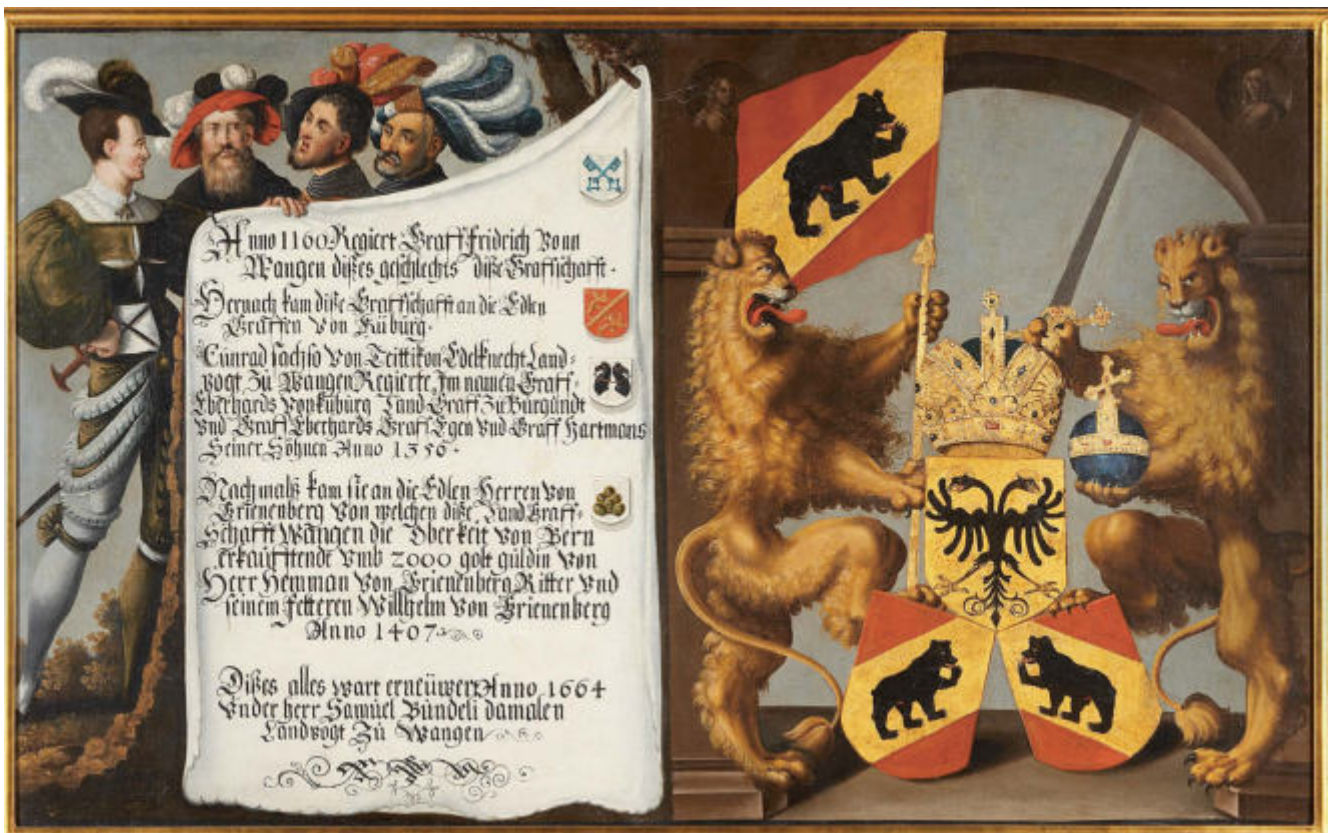 Anno 1160 Regiert Graff Fridrich Vonn
Wangen dißes geschlechts diße Graffschafft.
Hernach kam diße Graffschafft an die Edlen
Graffen Von Küburg.
Cünrad sachso Von Teittikon Edelknecht Land=
vogt Zů Wangen Regierte Im namen Graff=
Eberhards Von Küburg Land Graff Zu Burgundt
Vnd Graff Eberhards Graff Egen Vnd Graff Hartmans
Seiner Söhnen Anno 1356.
Nachmalß kam sie an die Edlen Herren Von
Grienenberg Von welchen diße Land Graff=
Schafft Wangen die Oberkeit Von Bern
erkaufft Vmb 2000 golt güldin Von
Herr Hemman Von Grienenberg Ritter Vnd
seinem fetteren Willhelm Von Grienenberg
Anno 1407
Dißes alles wart erneüwert Anno 1664
Vnder herr Samuel Bündeli damalen
Landvogt Zů Wangen